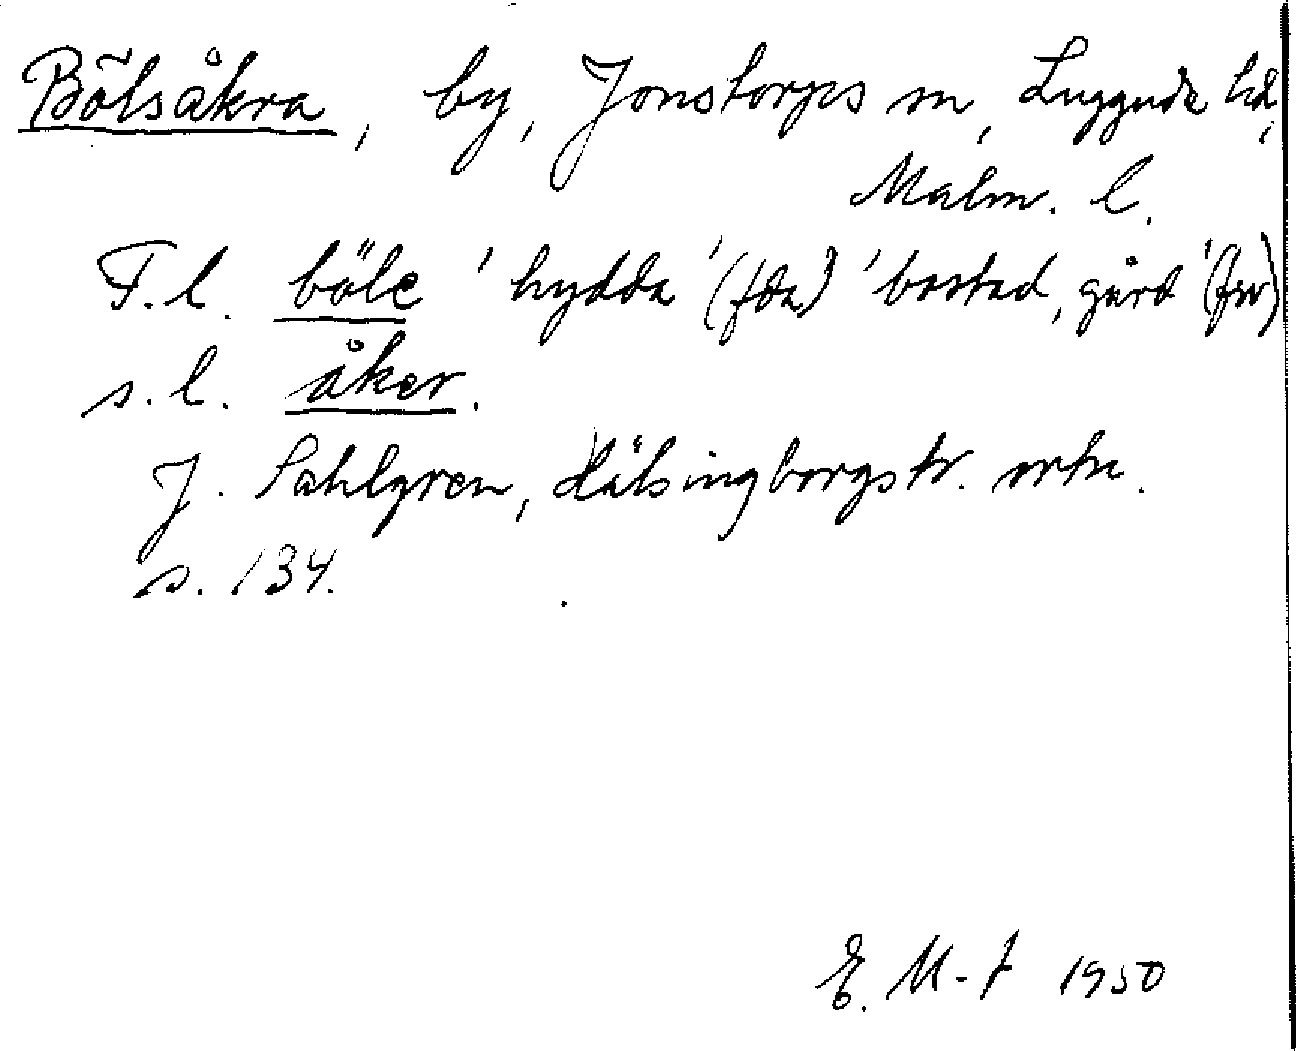 Bölsåkra, by, Jonstorps sn, Luggude hd,
Malm. l.
F.l. böle 'hydda' (fda) 'bostad, gård' (fsv)
s.l. åker.
J. Sahlgren, Hälsingborgstr. ortn.
s. 134.
E. M-t 1950